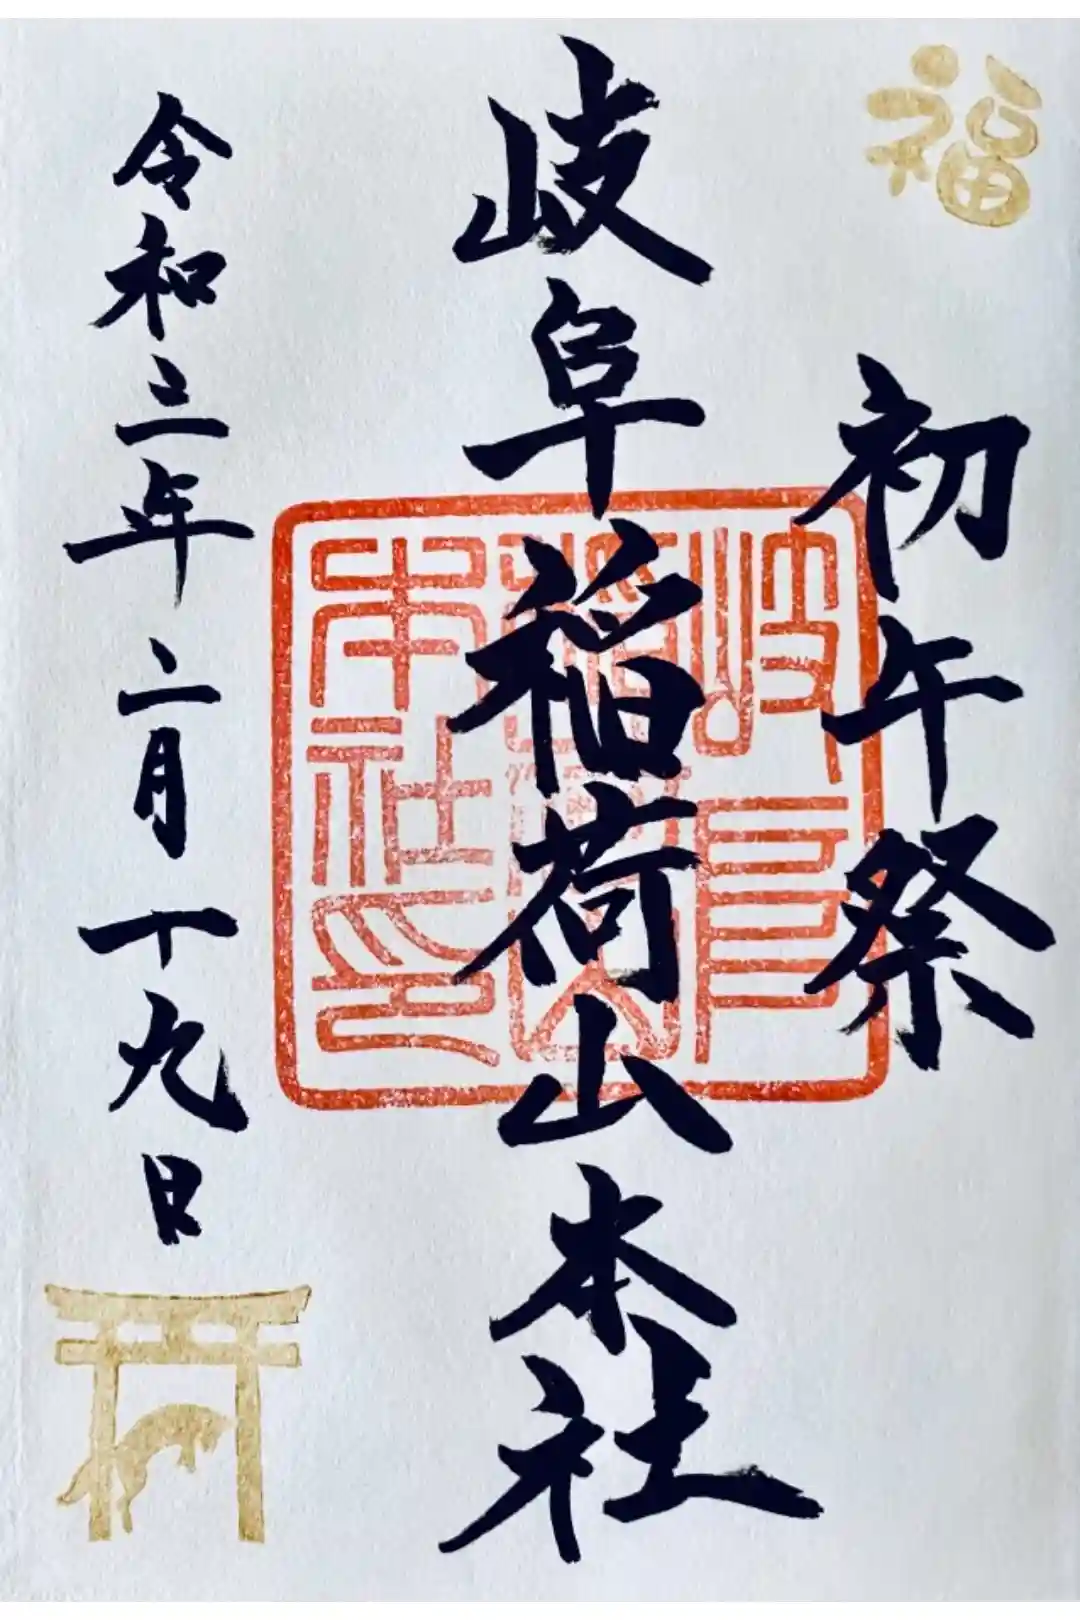 福
初午祭
岐阜稲荷山本社
岐阜稲荷山本社印
令和三年二月十九日